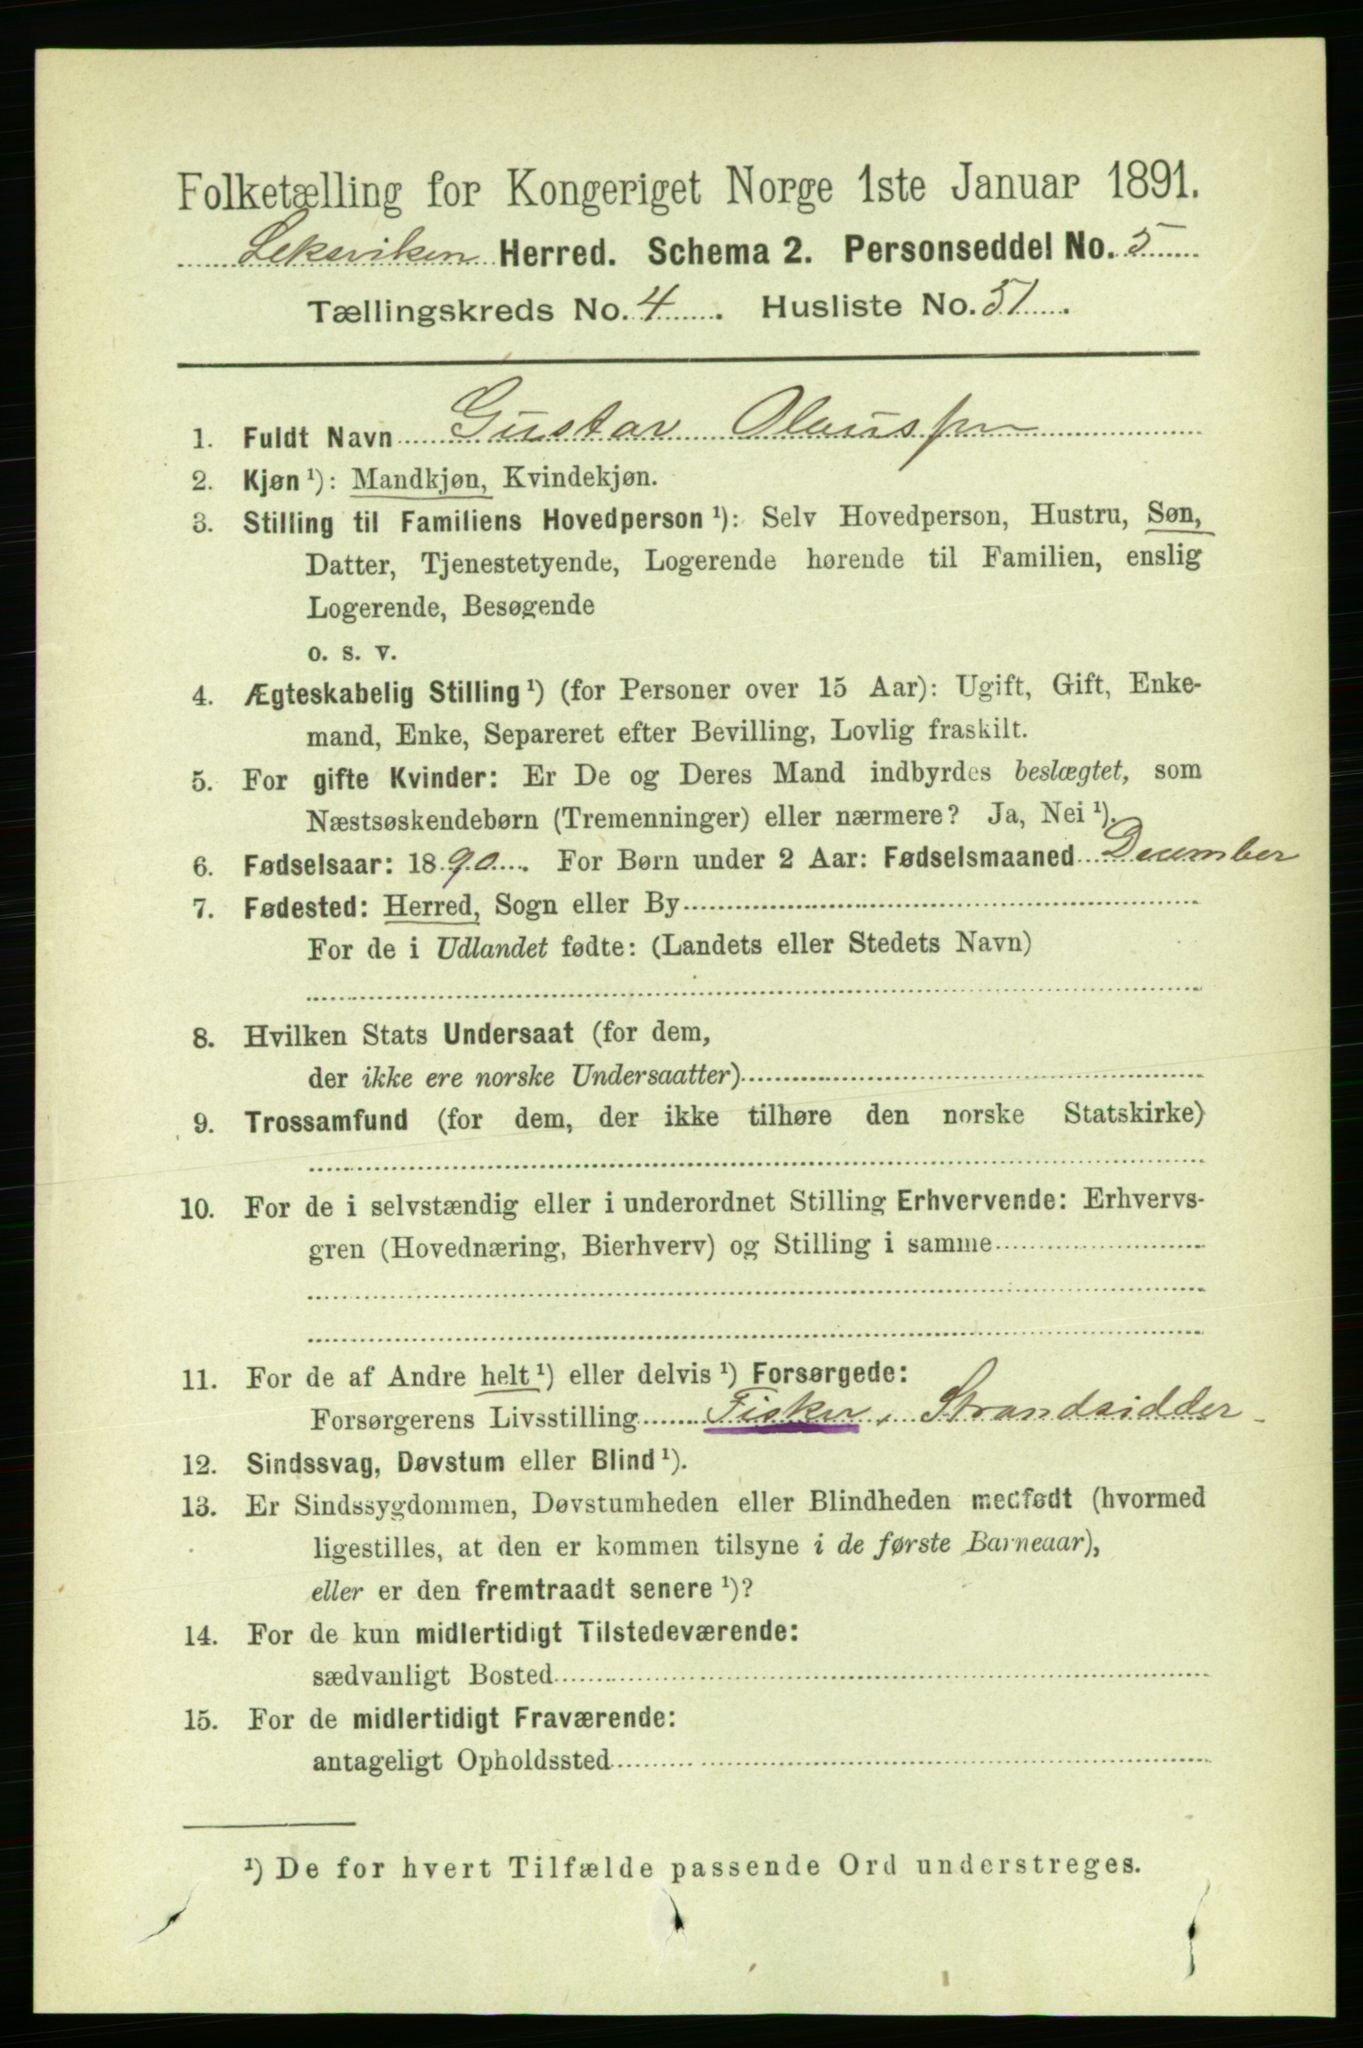 Folketælling for Kongeriget Norge 1ste Januar 1891.
Lekeviken Herred. Schema 2. Personseddel No. 5
Tællingskreds No. 4. Husliste No. 51.
1. Fuldt Navn Gustav Olaussen
2. Kjøn ¹): Mandkjøn, Kvindekjøn.
3. Stilling til Familiens Hovedperson ¹): Selv Hovedperson, Hustru, Søn,
Datter, Tjenestetyende, Logerende hørende til Familien, enslig
Logerende, Besøgende
o. s. v.
4. Ægteskabelig Stilling ¹) (for Personer over 15 Aar): Ugift, Gift, Enke-
mand, Enke, Separeret efter Bevilling, Lovlig fraskilt.
5. For gifte Kvinder: Er De og Deres Mand indbyrdes beslægtet, som
Næstsøskendebørn (Tremenninger) eller nærmere? Ja, Nei ¹).
6. Fødselsaar: 1890. For Børn under 2 Aar: Fødselsmaaned December
7. Fødested: Herred, Sogn eller By
For de i Udlandet fødte: (Landets eller Stedets Navn)
8. Hvilken Stats Undersaat (for dem,
der ikke ere norske Undersaatter)
9. Trossamfund (for dem, der ikke tilhøre den norske Statskirke)
10. For de i selvstændig eller i underordnet Stilling Erhvervende: Erhvervs-
gren (Hovednæring, Bierhverv) og Stilling i samme
11. For de af Andre helt ¹) eller delvis ¹) Forsørgede:
Forsørgerens Livsstilling Fisker, Strandsidder
12. Sindssvag, Døvstum eller Blind ¹).
13. Er Sindssygdommen, Døvstumheden eller Blindheden medfødt (hvormed
ligestilles, at den er kommen tilsyne i de første Barneaar),
eller er den fremtraadt senere ¹)?
14. For de kun midlertidigt Tilstedeværende:
sædvanligt Bosted
15. For de midlertidigt Fraværende:
antageligt Opholdssted
¹) De for hvert Tilfælde passende Ord understreges.